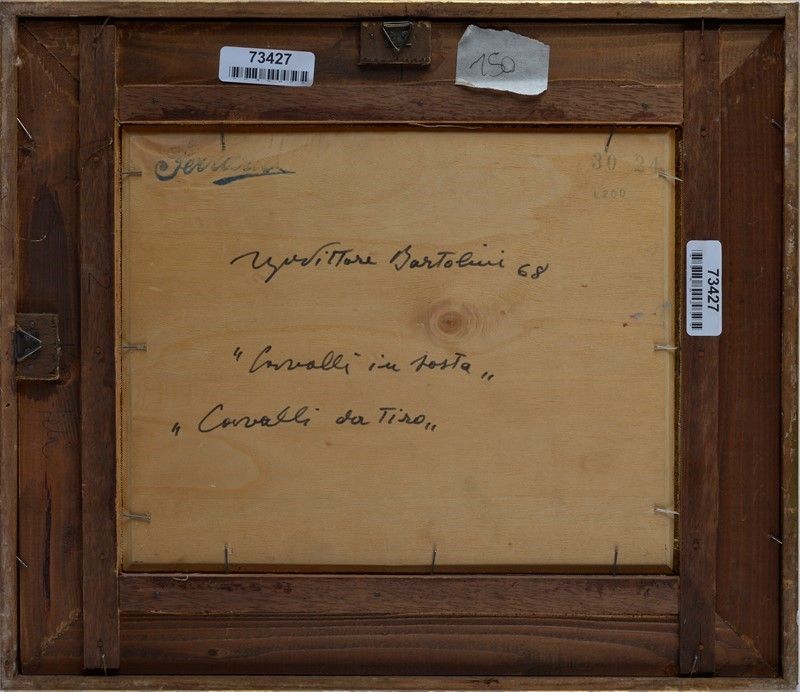 73427
150
Ferrario
30 24
L200
Ugo Vittore Bartolini 68
"Cavalli in sosta"
"Cavalli da Tiro"
73427